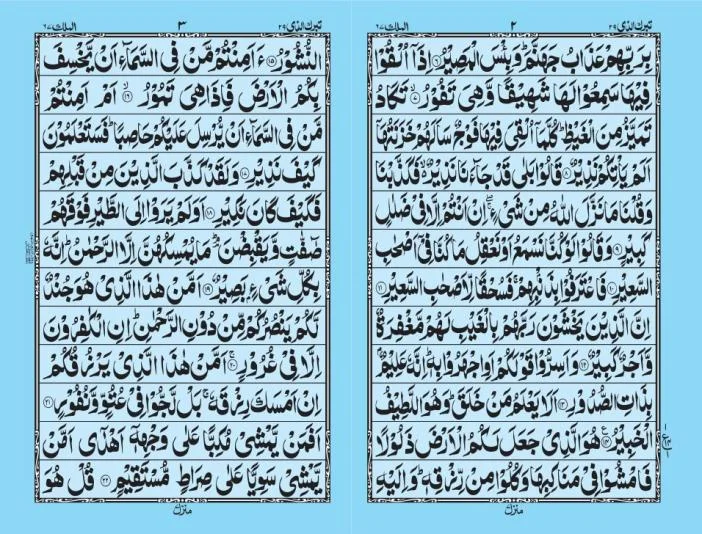 تبٰرك الذی ٢٩
٢
الملك ٦٧
بِرَبِّهِمْ عَذَابُ جَهَنَّمَ ؕ وَبِئْسَ الْمَصِیْرُ ۝٦ اِذَاۤ اُلْقُوْا
فِیْهَا سَمِعُوْا لَهَا شَهِیْقًا وَّهِیَ تَفُوْرُ ۝٧ تَكَادُ
تَمَیَّزُ مِنَ الْغَیْظِ ؕ كُلَّمَاۤ اُلْقِیَ فِیْهَا فَوْجٌ سَاَلَهُمْ خَزَنَتُهَاۤ
اَلَمْ یَاْتِكُمْ نَذِیْرٌ ۝٨ قَالُوْا بَلٰی قَدْ جَآءَنَا نَذِیْرٌ ۙ۬ فَكَذَّبْنَا
وَقُلْنَا مَا نَزَّلَ اللّٰهُ مِنْ شَیْءٍ ۖۚ اِنْ اَنْتُمْ اِلَّا فِیْ ضَلٰلٍ
كَبِیْرٍ ۝٩ وَقَالُوْا لَوْ كُنَّا نَسْمَعُ اَوْ نَعْقِلُ مَا كُنَّا فِیْۤ اَصْحٰبِ
السَّعِیْرِ ۝١٠ فَاعْتَرَفُوْا بِذَنْۢبِهِمْ ۚ فَسُحْقًا لِّاَصْحٰبِ السَّعِیْرِ ۝١١
اِنَّ الَّذِیْنَ یَخْشَوْنَ رَبَّهُمْ بِالْغَیْبِ لَهُمْ مَّغْفِرَةٌ
وَّاَجْرٌ كَبِیْرٌ ۝١٢ وَاَسِرُّوْا قَوْلَكُمْ اَوِ اجْهَرُوْا بِهٖ ؕ اِنَّهٗ عَلِیْمٌۢ
بِذَاتِ الصُّدُوْرِ ۝١٣ اَلَا یَعْلَمُ مَنْ خَلَقَ ؕ وَهُوَ اللَّطِیْفُ
الْخَبِیْرُ ۝١٤ هُوَ الَّذِیْ جَعَلَ لَكُمُ الْاَرْضَ ذَلُوْلًا
فَامْشُوْا فِیْ مَنَاكِبِهَا وَكُلُوْا مِنْ رِّزْقِهٖ ؕ وَاِلَیْهِ
منزل
تبٰرك الذی ٢٩
٣
الملك ٦٧
النُّشُوْرُ ۝١٥ ءَاَمِنْتُمْ مَّنْ فِی السَّمَآءِ اَنْ یَّخْسِفَ
بِكُمُ الْاَرْضَ فَاِذَا هِیَ تَمُوْرُ ۝١٦ اَمْ اَمِنْتُمْ
مَّنْ فِی السَّمَآءِ اَنْ یُّرْسِلَ عَلَیْكُمْ حَاصِبًا ؕ فَسَتَعْلَمُوْنَ
كَیْفَ نَذِیْرِ ۝١٧ وَلَقَدْ كَذَّبَ الَّذِیْنَ مِنْ قَبْلِهِمْ
فَكَیْفَ كَانَ نَكِیْرِ ۝١٨ اَوَلَمْ یَرَوْا اِلَی الطَّیْرِ فَوْقَهُمْ
صٰٓفّٰتٍ وَّیَقْبِضْنَ ؔۘ مَا یُمْسِكُهُنَّ اِلَّا الرَّحْمٰنُ ؕ اِنَّهٗ
بِكُلِّ شَیْءٍۭ بَصِیْرٌ ۝١٩ اَمَّنْ هٰذَا الَّذِیْ هُوَ جُنْدٌ
لَّكُمْ یَنْصُرُكُمْ مِّنْ دُوْنِ الرَّحْمٰنِ ؕ اِنِ الْكٰفِرُوْنَ
اِلَّا فِیْ غُرُوْرٍ ۝٢٠ اَمَّنْ هٰذَا الَّذِیْ یَرْزُقُكُمْ
اِنْ اَمْسَكَ رِزْقَهٗ ۚ بَلْ لَّجُّوْا فِیْ عُتُوٍّ وَّنُفُوْرٍ ۝٢١
اَفَمَنْ یَّمْشِیْ مُكِبًّا عَلٰی وَجْهِهٖۤ اَهْدٰۤی اَمَّنْ
یَّمْشِیْ سَوِیًّا عَلٰی صِرَاطٍ مُّسْتَقِیْمٍ ۝٢٢ قُلْ هُوَ
منزل